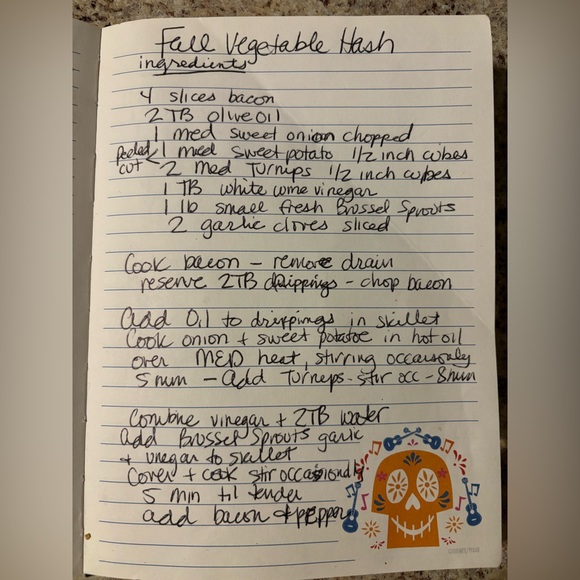 Fall Vegetable Hash
ingredients
4 slices bacon
2 TB olive oil
1 med sweet onion chopped
peeled cut
1 med sweet potato 1/2 inch cubes
2 med Turnips 1/2 inch cubes
1 TB white wine vinegar
1 lb small fresh Brussel Sprouts
2 garlic cloves sliced
Cook bacon - remove drain
reserve 2TB drippings - chop bacon
Add Oil to drippings in skillet
Cook onion + sweet potatoe in hot oil
over MED heat, stirring occasionaly
5 min - Add Turneps - stir occ - 8 min
Combine vinegar + 2TB water
add Brussel Sprouts garlic
+ vinegar to skillet
Cover + cook stir occasionaly
5 min til tender
add bacon + pepper